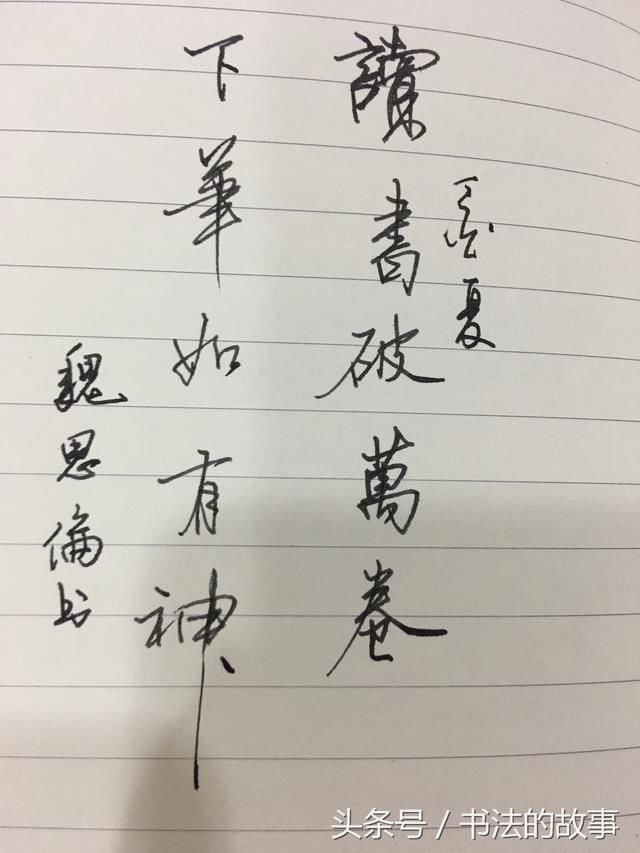 夏
讀書破萬卷
下筆如有神
魏思倫书
头条号 / 书法的故事